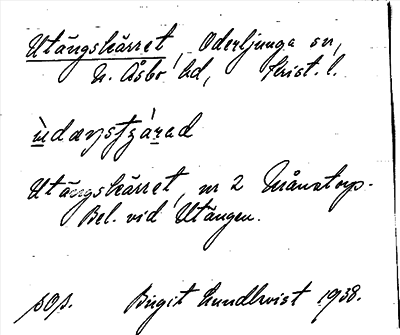 Utängskärret, Oderljunga sn,
N. Åsbo hd, Krist. l.
ùdæŋstɟárad
Utängskärret, nr 2 Månstorp.
Bel. vid Utängen.
sOp. Birgit Lundkvist 1938.